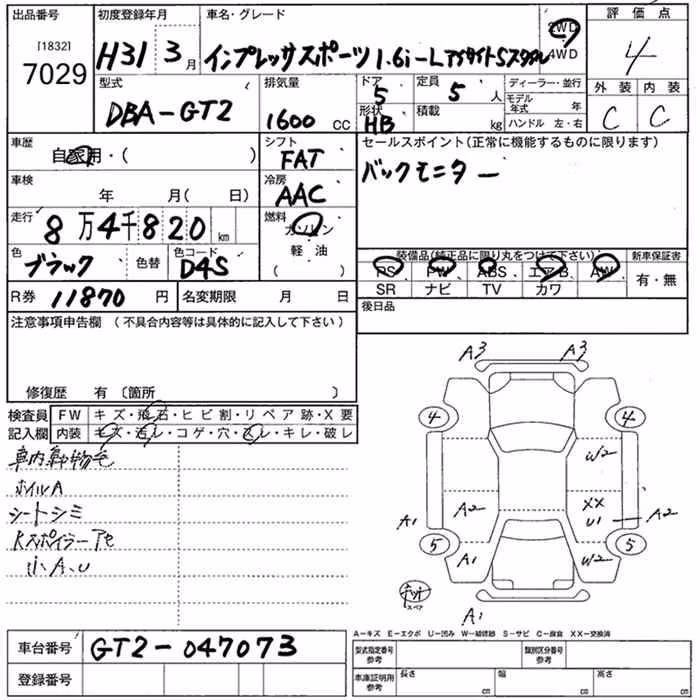 出品番号 初度登録年月 車名・グレード 評価点
[1832] 7029
H31 3月 インプレッサスポーツ 1.6i-LアイサイトSスタイル 2WD 4WD 4
型式 排気量 ドア 定員 ディーラー・並行 外装 内装
DBA-GT2 1600 CC 5 5人 モデル年式 年 C C
形状 積載 ハンドル 左・右
HB kg
車歴 シフト セールスポイント(正常に機能するものに限ります)
自家用・( ) FAT バックモニター
車検 冷房
年 月( 日) AAC
走行 燃料
8万4千820km ガソリン
色 色替 色コード 軽油
ブラック D4S ( )
装備品(純正品に限り丸をつけて下さい) 新車保証書
PS PW ABS エアB AW 有・無
SR ナビ TV カワ
R券 11870円 名変期限 月 日 後日品
注意事項申告欄(不具合内容等は具体的に記入して下さい)
修復歴 有〔箇所 〕
検査員 FW キズ・飛石・ヒビ割・リペア跡・X要
記入欄 内装 キズ・汚レ・コゲ・穴・スレ・キレ・破レ
車内動物毛
ホイルA
シートシミ
Rスポイラー
小A、U
A3 A3
4 4
W2
A2 XX
A1 U1 A2
5 5
A1 W2
スペア
A1
A-キズ E-エクボ U-凹み W-補修跡 S-サビ C-腐食 XX-交換済
車台番号 GT2-047073 型式指定番号 参考 類別区分番号 参考
登録番号 車庫証明用 参考 長さ cm 幅 cm 高さ cm